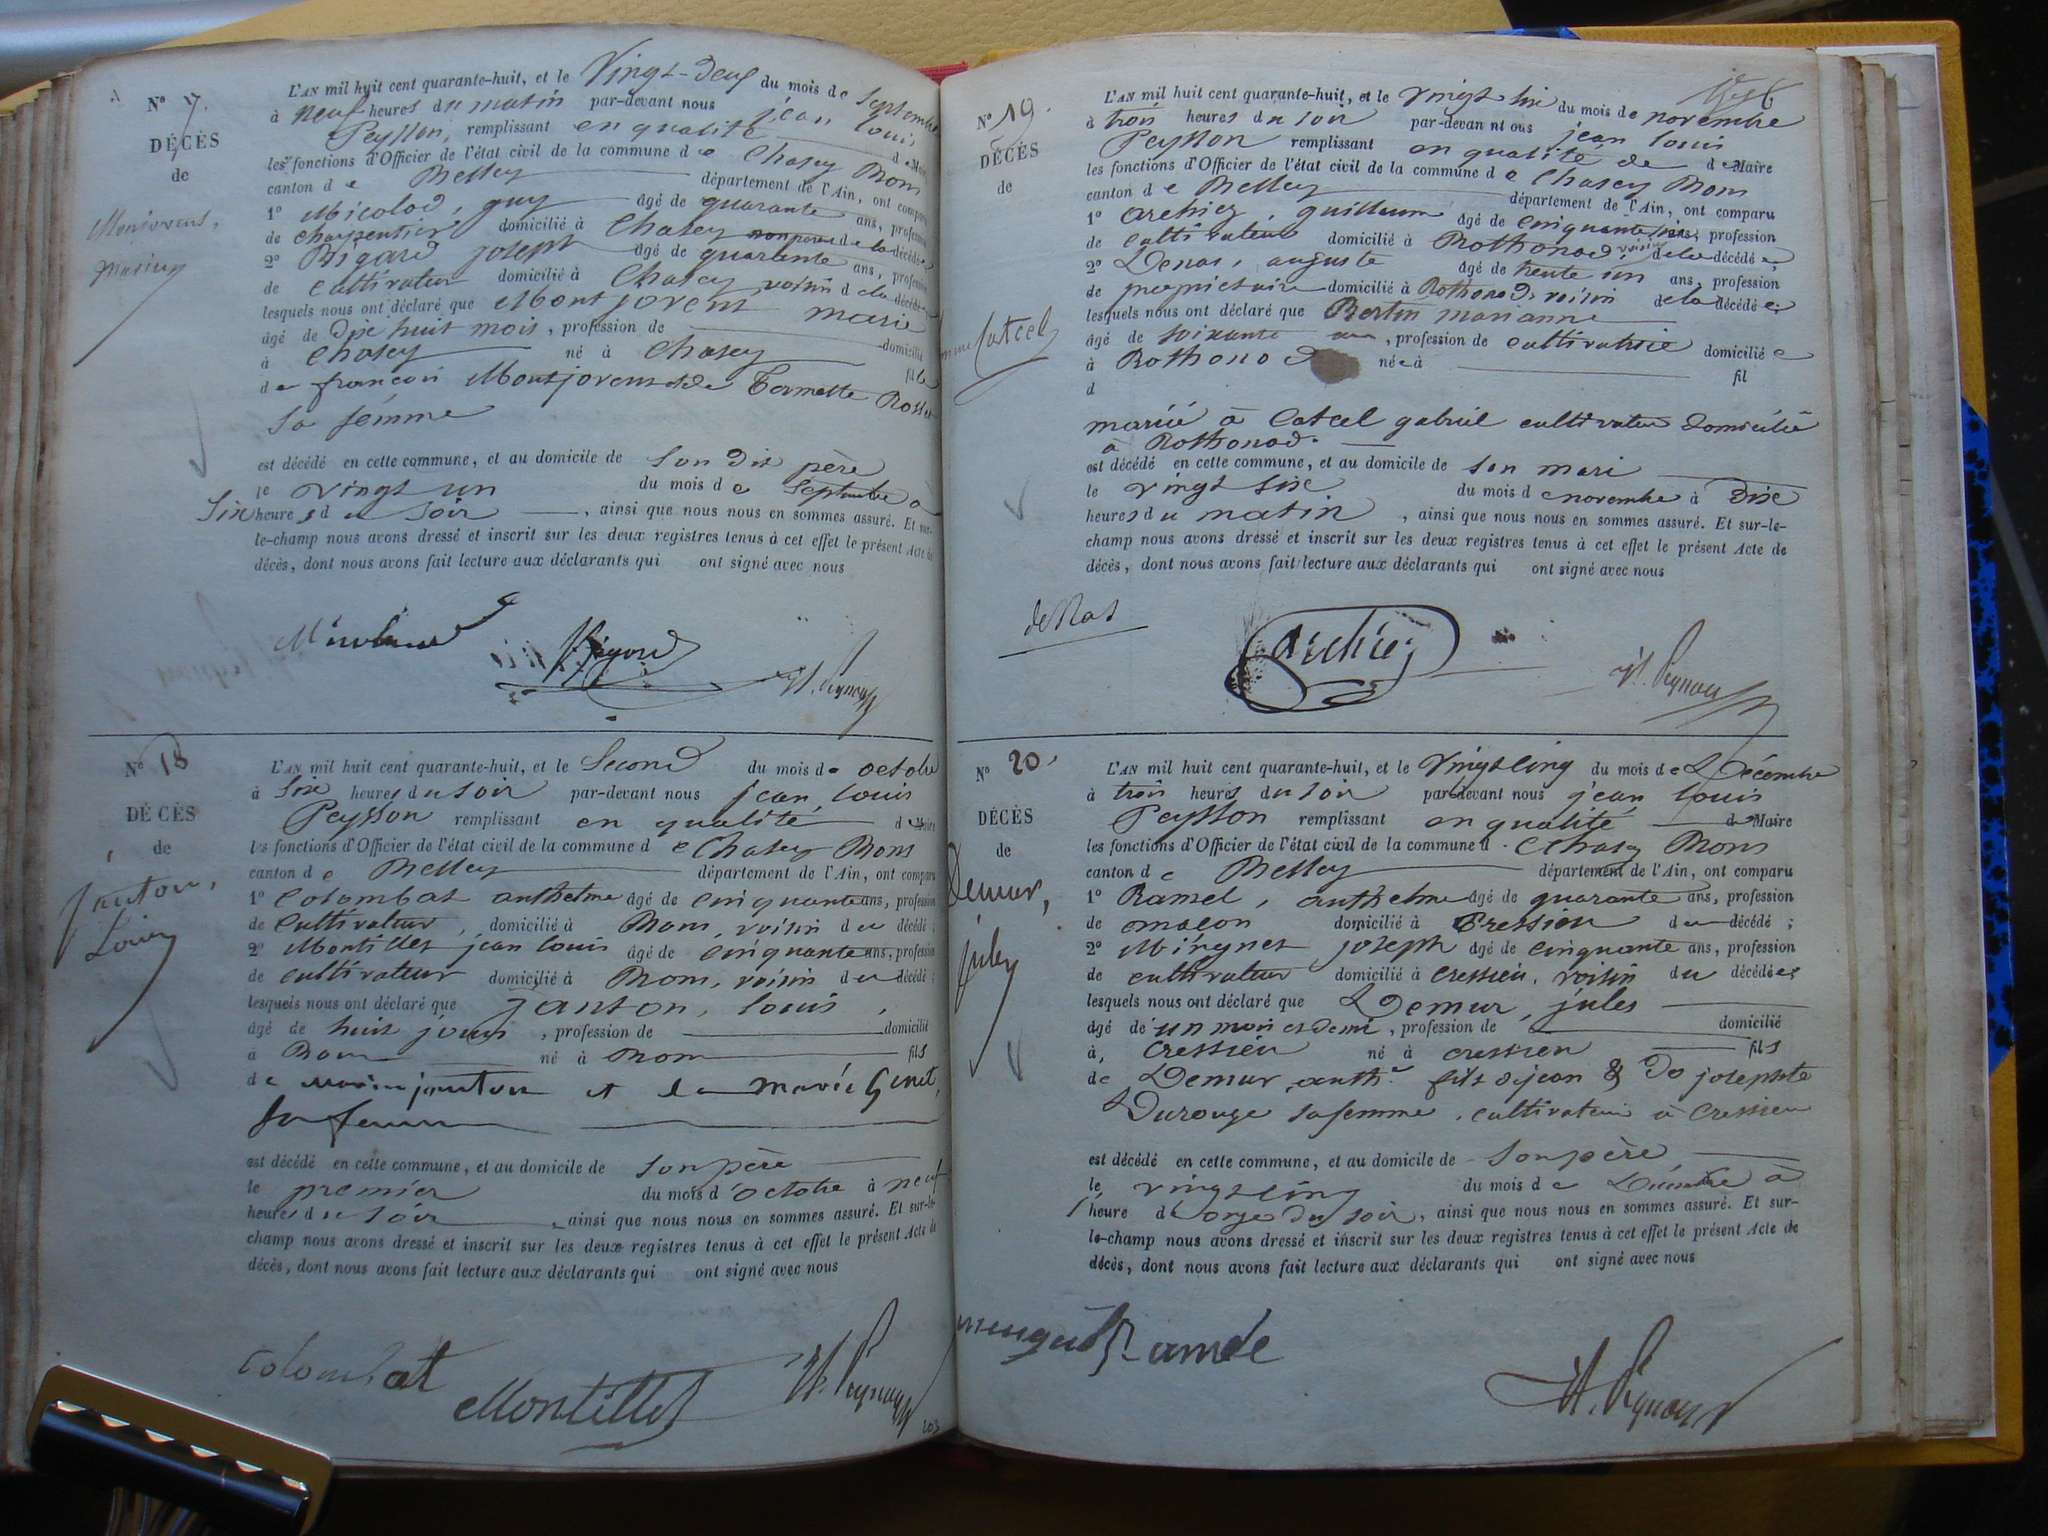 N° 17.
DÉCÈS
de
Montjovent,
L'AN mil huit cent quarante-huit, et le Vingt-deux du mois de Septembre
à neuf heures du matin par-devant nous jean louis
Peysson, remplissant en qualité de Maire
les fonctions d'Officier de l'état civil de la commune de Chasey Bons
canton de Belley département de l'Ain, ont comparu
1° Micolod, guy âgé de quarante ans, profession
de charpentier domicilié à Chasey de la décédée
2° Bigard joseph âgé de quarante ans, profession
de cultivateur domicilié à Chasey voisin de la décédée
lesquels nous ont déclaré que Montjovent marie
âgé de dix huit mois, profession de domicilié
à Chasey né à Chasey fil
de françois Montjovent et de Rosset
sa femme
est décédé en cette commune, et au domicile de son dit père
le vingt un du mois de Septembre à
Six heures du soir, ainsi que nous nous en sommes assuré. Et sur-
le-champ nous avons dressé et inscrit sur les deux registres tenus à cet effet le présent Acte de
décès, dont nous avons fait lecture aux déclarants qui ont signé avec nous
Bigard
N° 18
DÉCÈS
de
janton,
Louis
L'AN mil huit cent quarante-huit, et le Second du mois de octobre
à Six heures du soir par-devant nous jean, louis
Peysson remplissant en qualité de Maire
les fonctions d'Officier de l'état civil de la commune de Chasey Bons
canton de Belley département de l'Ain, ont comparu
1° Colombat anthelme âgé de cinquante ans, profession
de Cultivateur, domicilié à Bons, voisin du décédé;
2° Montillet jean louis âgé de cinquante ans, profession
de cultivateur domicilié à Bons, voisin du décédé;
lesquels nous ont déclaré que janton, louis,
âgé de huit jours, profession de domicilié
à Bons né à Bons fils
de janton et de marie Genet,
sa femme
est décédé en cette commune, et au domicile de son père
le premier du mois d'octobre à neuf
heures du soir, ainsi que nous nous en sommes assuré. Et sur-le-
champ nous avons dressé et inscrit sur les deux registres tenus à cet effet le présent Acte de
décès, dont nous avons fait lecture aux déclarants qui ont signé avec nous
colombat
Montillet
203
N° 19.
DÉCÈS
de
Catcel
L'AN mil huit cent quarante-huit, et le vingt six du mois de novembre
à trois heures du soir par-devant nous jean louis
Peysson remplissant en qualité de de Maire
les fonctions d'Officier de l'état civil de la commune de Chasey Bons
canton de Belley département de l'Ain, ont comparu
1° Archiez, guillaume âgé de cinquante six, profession
de cultivateur domicilié à Rothonod, voisin de la décédée,
2° Denas, auguste âgé de trente un ans, profession
de propriétaire domicilié à Rothonod, voisin de la décédée
lesquels nous ont déclaré que Bertin marianne
âgé de soixante, profession de cultivatrice domiciliée
à Rothonod née à
fil
d
mariée à Catcel gabriel cultivateur domicilié
à Rothonod.
est décédé en cette commune, et au domicile de son mari
le vingt six du mois de novembre à dix
heures du matin, ainsi que nous nous en sommes assuré. Et sur-le-
champ nous avons dressé et inscrit sur les deux registres tenus à cet effet le présent Acte de
décès, dont nous avons fait lecture aux déclarants qui ont signé avec nous
Archiez
N° 20.
DÉCÈS
de
Demur,
jules
L'AN mil huit cent quarante-huit, et le Vingt cinq du mois de Décembre
à trois heures du soir par-devant nous jean louis
Peysson remplissant en qualité de Maire
les fonctions d'Officier de l'état civil de la commune de Chasey Bons
canton de Belley département de l'Ain, ont comparu
1° Ramel, anthelme âgé de quarante ans, profession
de maçon domicilié à Cressieu du décédé;
2° joseph âgé de cinquante ans, profession
de cultivateur domicilié à cressieu, voisin du décédé
lesquels nous ont déclaré que Demur, jules
âgé de un mois et demi, profession de domicilié
à, cressieu né à cressieu fils
de Demur anth.e fils de jean & de josephte
Durouge sa femme, cultivateurs à Cressieu
est décédé en cette commune, et au domicile de son père
le vingt cinq du mois de Décembre à
heure de onze du soir, ainsi que nous nous en sommes assuré. Et sur-
le-champ nous avons dressé et inscrit sur les deux registres tenus à cet effet le présent Acte de
décès, dont nous avons fait lecture aux déclarants qui ont signé avec nous